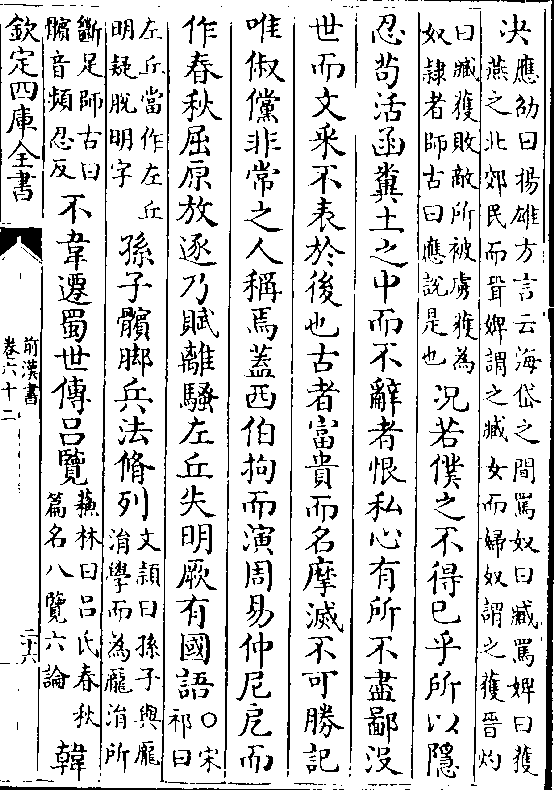 決應劭曰揚雄方言云海岱之間罵奴曰臧罵婢曰獲
燕之北郊民而聟婢謂之臧女而婦奴謂之獲晉灼
曰臧獲敗敵所被虜獲為
奴隷者師古曰應說是也况若僕之不得已乎所以隱
忍苟活函糞土之中而不辭者恨私心有所不盡鄙没
世而文采不表於後也古者富貴而名摩滅不可勝記
唯俶儻非常之人稱焉蓋西伯拘而演周易仲尼戹而
作春秋屈原放逐乃賦離騷左丘失明厥有國語○宋
祁曰
左丘當作左丘
明疑脫明字孫子髕脚兵法脩列文頴曰孫子與龐
涓學而為龐涓所
斷足師古曰
髕音頻忍反不韋遷蜀世傳吕覽蘇林曰吕氏春秋
篇名八覽六論韓
欽定四庫全書
前漢書
卷六十二
二十六